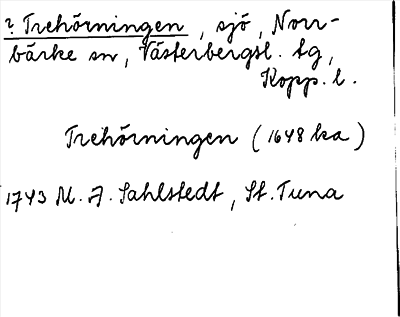 ? Trehörningen, sjö, Norr-
bärke sn, Västerbergsl. tg,
Kopp. l.
Trehörningen (1648 ka)
1743 M. A. Sahlstedt, St. Tuna